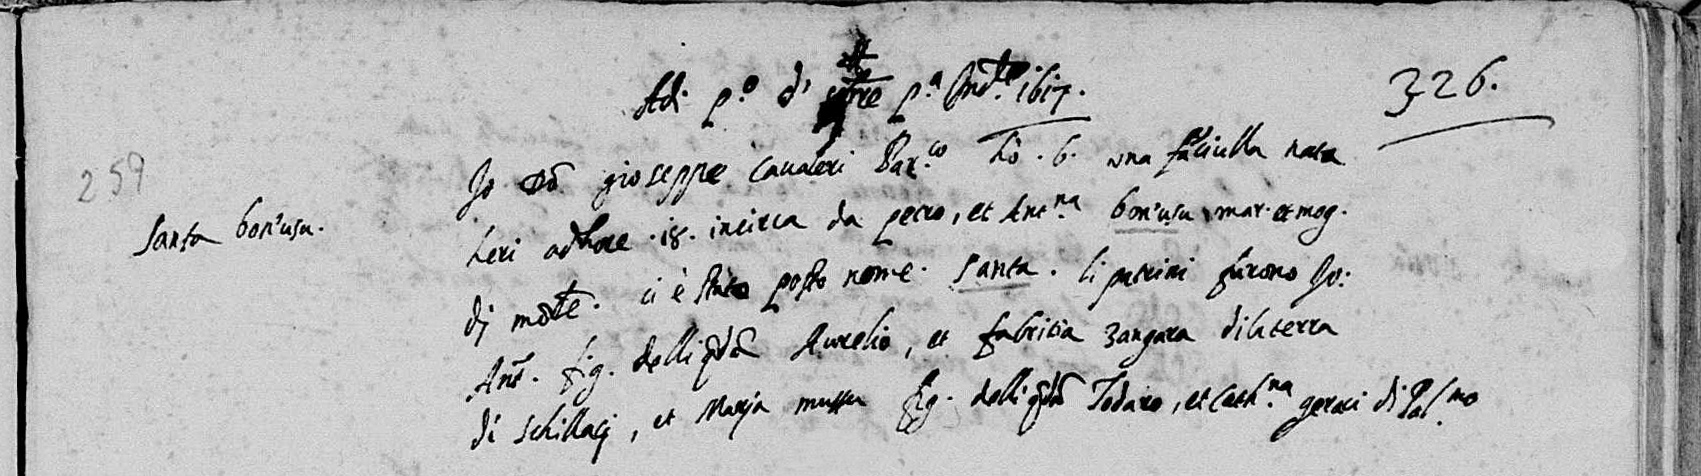 326.
Adi p.º di 7bre p.ª Ind.e 1617.
259
Santa bon'usu.
Jo Do giuseppe cavaleri Par.co hò. b. una faciulla nata
heri adhore .18. incirca da petro, et Ant.na bon'usu mar. et mog.
di mote. ci è stato posto nome. Santa. li patrini furono Jo:
Ant. fig. delli qda Aurelio, et fabritia zangara dila terra
di schillaci, et Marja mussu fig. delli qda Todaro, et Cath.na geraci di Pal.mo